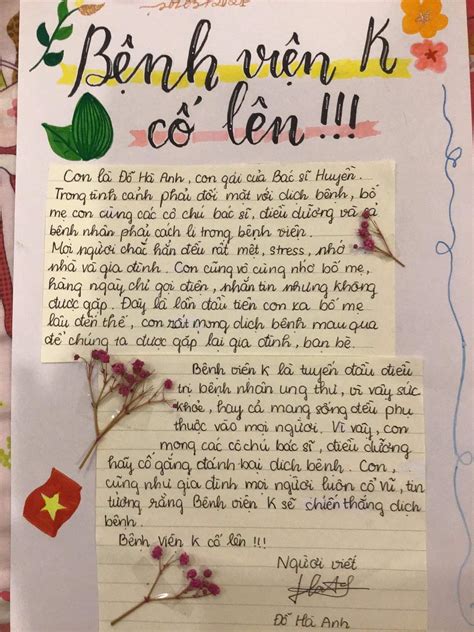 Bệnh viện K
cố lên !!!
Con là Đỗ Hà Anh, con gái của Bác sĩ Huyền.
Trong tình cảnh phải đối mặt với dịch bệnh, bố
mẹ con cùng các cô chú bác sĩ, điều dưỡng và cả
bệnh nhân phải cách li trong bệnh viện.
Mọi người chắc hẳn đều rất mệt, stress, nhớ
nhà và gia đình. Con cũng vô cùng nhớ bố mẹ,
hàng ngày chỉ gọi điện, nhắn tin nhưng không
được gặp. Đây là lần đầu tiên con xa bố mẹ
lâu đến thế, con rất mong dịch bệnh mau qua
để chúng ta được gặp lại gia đình, bạn bè.
Bệnh viện K là tuyến đầu điều
trị bệnh nhân ung thư, vì vậy sức
khỏe, hay cả mạng sống đều phụ
thuộc vào mọi người. Vì vậy, con
mong các cô chú bác sĩ, điều dưỡng
hãy cố gắng đánh bại dịch bệnh. Con,
cũng như gia đình mọi người luôn cổ vũ, tin
tưởng rằng Bệnh viện K sẽ chiến thắng dịch
bệnh.
Bệnh viện K cố lên !!!
Người viết
Đỗ Hà Anh